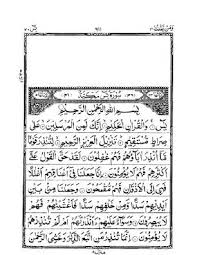 سورة يس مكية
بسم الله الرحمن الرحيم
يس ۝ والقرآن الحكيم ۝ إنك لمن المرسلين ۝ على
صراط مستقيم ۝ تنزيل العزيز الرحيم ۝ لتنذر قوما
ما أنذر آباؤهم فهم غفلون ۝ لقد حق القول على
أكثرهم فهم لا يؤمنون ۝ إنا جعلنا في أعناقهم أغللا
فهي إلى الأذقان فهم مقمحون ۝ وجعلنا من بين
أيديهم سدا ومن خلفهم سدا فأغشينهم فهم
لا يبصرون ۝ وسواء عليهم ءأنذرتهم أم لم تنذرهم
لا يؤمنون ۝ إنما تنذر من اتبع الذكر وخشي الرحمن